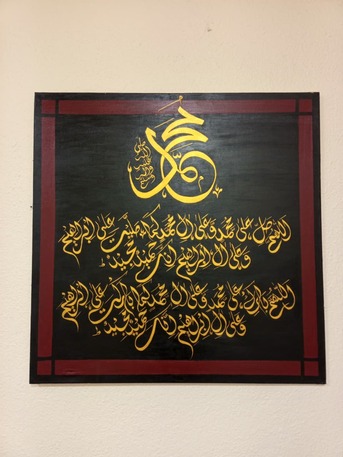 محمد
صلى الله عليه وسلم
اللهم صل على محمد وعلى آل محمد كما صليت على إبراهيم
وعلى آل إبراهيم إنك حميد مجيد
اللهم بارك على محمد وعلى آل محمد كما باركت على إبراهيم
وعلى آل إبراهيم إنك حميد مجيد